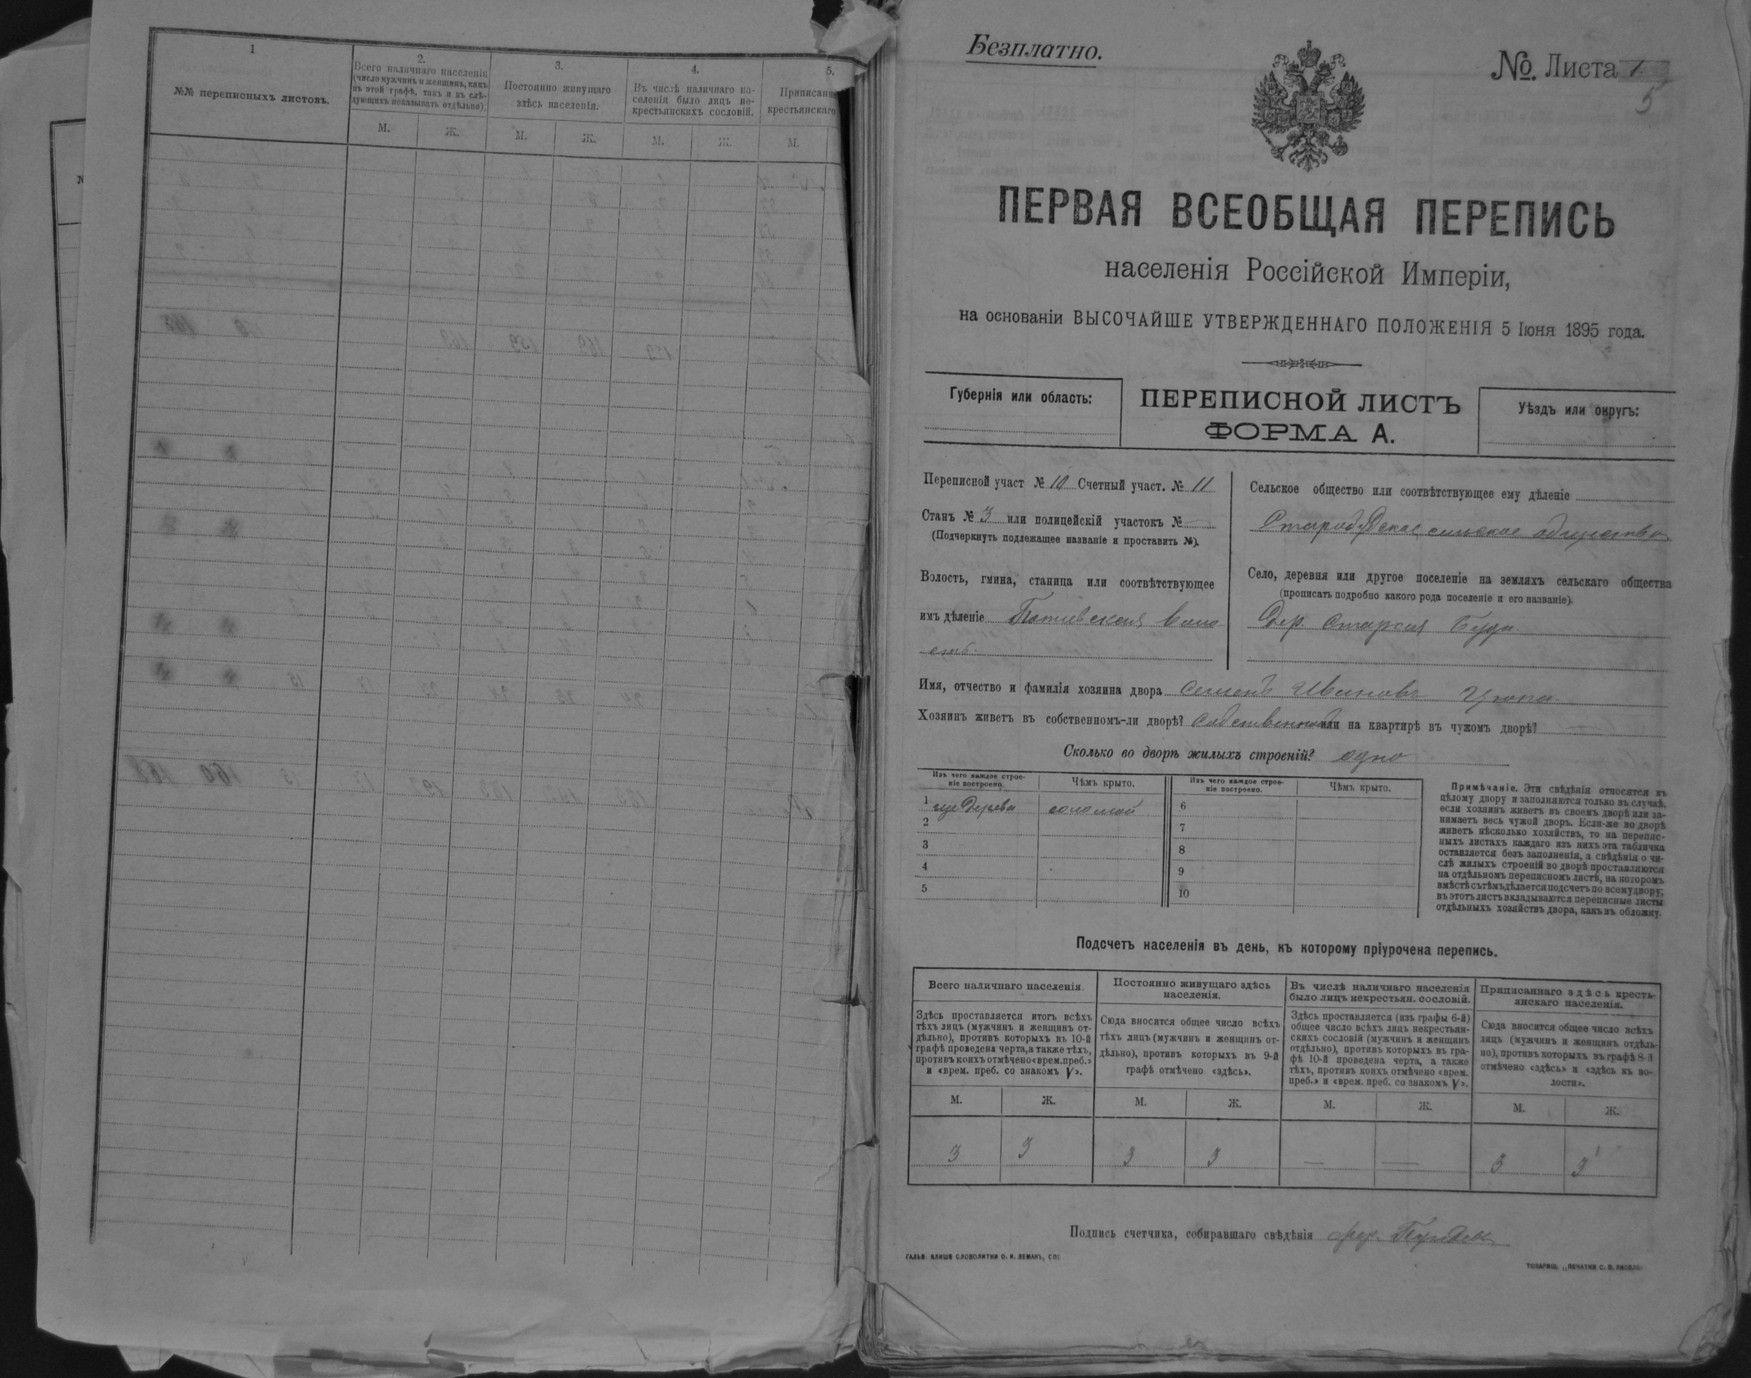 1
№№ переписныхъ листовъ.
2.
Всего наличнаго населенія
(число мужчинъ и женщинъ, какъ
въ этой графѣ, такъ и въ слѣ-
дующихъ показывать отдѣльно).
3.
Постоянно живущаго
здѣсь населенія.
4.
Въ числѣ наличнаго на-
селенія было лицъ не-
крестьянскихъ сословій.
5.
Приписан
крестьянскаг
М. Ж. М. Ж. М. Ж. М.
Безплатно.
№ Листа 1
5
ПЕРВАЯ ВСЕОБЩАЯ ПЕРЕПИСЬ
населенія Россійской Имперіи,
на основаніи ВЫСОЧАЙШЕ УТВЕРЖДЕННАГО ПОЛОЖЕНІЯ 5 Іюня 1895 года.
Губернія или область:
ПЕРЕПИСНОЙ ЛИСТЪ
ФОРМА А.
Уѣздъ или округъ:
Переписной участ № 10 Счетный участ. № 11
Станъ № 3 или полицейскій участокъ № —
(Подчеркнуть подлежащее названіе и проставить №).
Волость, гмина, станица или соотвѣтствующее
имъ дѣленіе воло
сть.
Сельское общество или соотвѣтствующее ему дѣленіе
сельское
Село, деревня или другое поселеніе на земляхъ сельскаго общества
(прописать подробно какого рода поселеніе и его названіе).
Дер. Старая Буда
Имя, отчество и фамилія хозяина двора Семенъ Ивановъ
Хозяинъ живетъ въ собственномъ-ли дворѣ? или на квартирѣ въ чужомъ дворѣ? —
Сколько во дворѣ жилыхъ строеній? одно
Изъ чего каждое строе-
ніе построено.
Чѣмъ крыто.
Изъ чего каждое строе-
ніе построено.
Чѣмъ крыто.
1 изъ дерева соломой 6
2 7
3 8
4 9
5 10
Примѣчаніе. Эти свѣдѣнія относятся къ
цѣлому двору и заполняются только въ случаѣ,
если хозяинъ живетъ въ своемъ дворѣ или за-
нимаетъ весь чужой дворъ. Если-же во дворѣ
живетъ нѣсколько хозяйствъ, то на перепис-
ныхъ листахъ каждаго изъ нихъ эта табличка
оставляется безъ заполненія, а свѣдѣнія о чи-
слѣ жилыхъ строеній во дворѣ проставляются
на отдѣльномъ переписномъ листѣ, на которомъ
вмѣстѣ съ тѣмъ дѣлается подсчетъ по всему двору;
въ этотъ листъ вкладываются переписные листы
отдѣльныхъ хозяйствъ двора, какъ въ обложку.
Подсчетъ населенія въ день, къ которому пріурочена перепись.
Всего наличнаго населенія.
Здѣсь проставляется итогъ всѣхъ
тѣхъ лицъ (мужчинъ и женщинъ от-
дѣльно), противъ которыхъ въ 10-й
графѣ проведена черта, а также тѣхъ,
противъ коихъ отмѣчено «врем. преб.»
и «врем. преб. со знакомъ V».
Постоянно живущаго здѣсь
населенія.
Сюда вносится общее число всѣхъ
тѣхъ лицъ (мужчинъ и женщинъ от-
дѣльно), противъ которыхъ въ 9-й
графѣ отмѣчено «здѣсь».
Въ числѣ наличнаго населенія
было лицъ некрестьян. сословій.
Здѣсь проставляется (изъ графы 6-й)
общее число всѣхъ лицъ некрестьян-
скихъ сословій (мужчинъ и женщинъ
отдѣльно), противъ которыхъ въ гра-
фѣ 10-й проведена черта, а также
тѣхъ, противъ коихъ отмѣчено «врем.
преб.» и «врем. преб. со знакомъ V».
Приписаннаго здѣсь кресть-
янскаго населенія.
Сюда вносится общее число всѣхъ
лицъ (мужчинъ и женщинъ отдѣль-
но), противъ которыхъ въ графѣ 8-й
отмѣчено «здѣсь» и «здѣсь къ во-
лости».
М. Ж. М. Ж. М. Ж. М. Ж.
3 3 3 3 — — 3 3
Подпись счетчика, собиравшаго свѣдѣнія
ГАЛЬВ. КЛИШЕ СЛОВОЛИТНИ О. И. ЛЕМАНЪ, СПБ
ТОВАРИЩ. „ПЕЧАТНЯ С. П. ЯКОВЛЕ